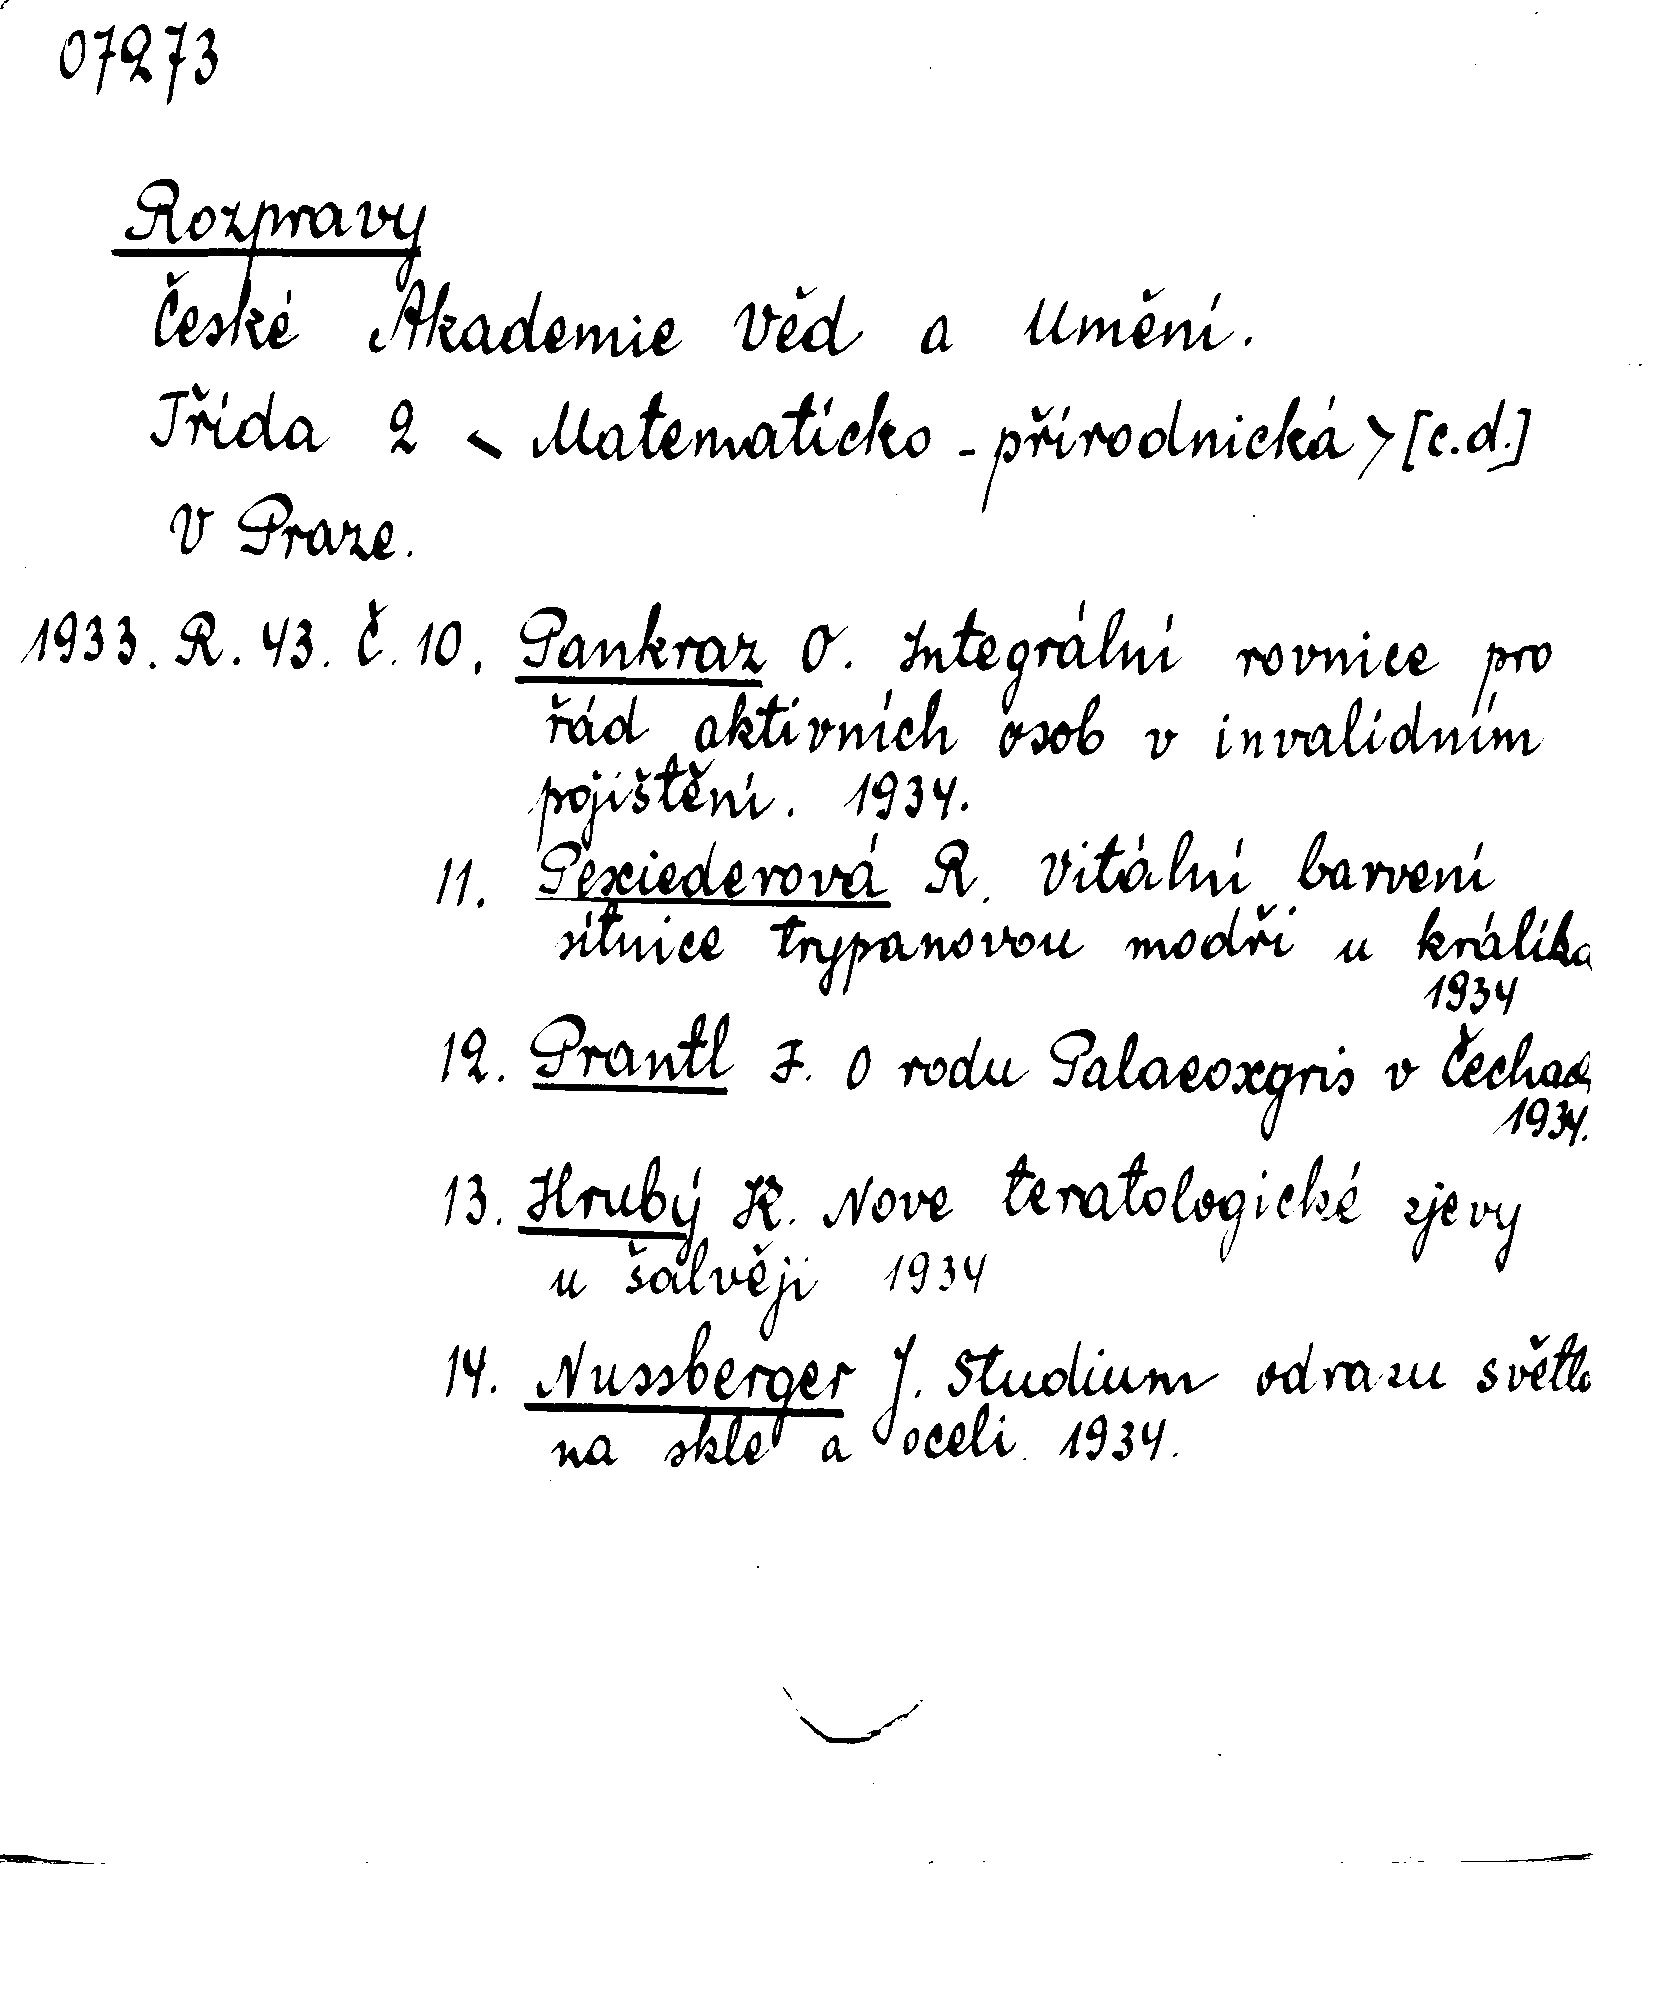 07273
Rozpravy
České Akademie Věd a Umění.
Třída 2 < Matematicko - přírodnická > [c.d.]
V Praze.
1933. R. 43. Č. 10. Pankraz O. Integrální rovnice pro
řád aktivních osob v invalidním
pojištění. 1934.
11. Pexiederová R. Vitální barvení
sítnice trypanovou modří u králíka
1934
12. Prantl F. O rodu Palaeoxgris v Čechach
1934.
13. Hrubý K. Nove teratologické zjevy
u šalvěji 1934
14. Nussberger J. Studium odrazu světla
na skle a oceli. 1934.